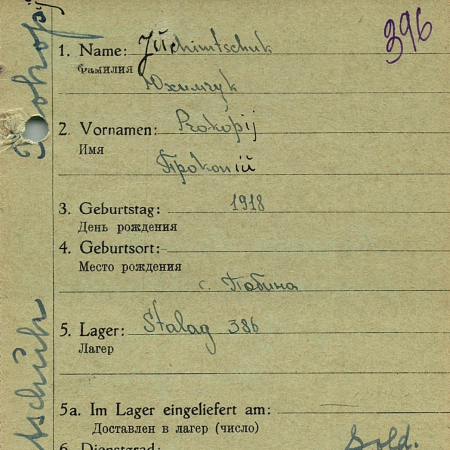 396
1. Name: Juchimtschuk
Фамилия
Юхимчук
2. Vornamen: Prokopij
Имя
Прокопій
3. Geburtstag: 1918
День рождения
4. Geburtsort:
Место рождения
с.
5. Lager: Stalag 386
Лагер
5a. Im Lager eingeliefert am:
Доставлен в лагер (число)
6. Dienstgrad: Sold.